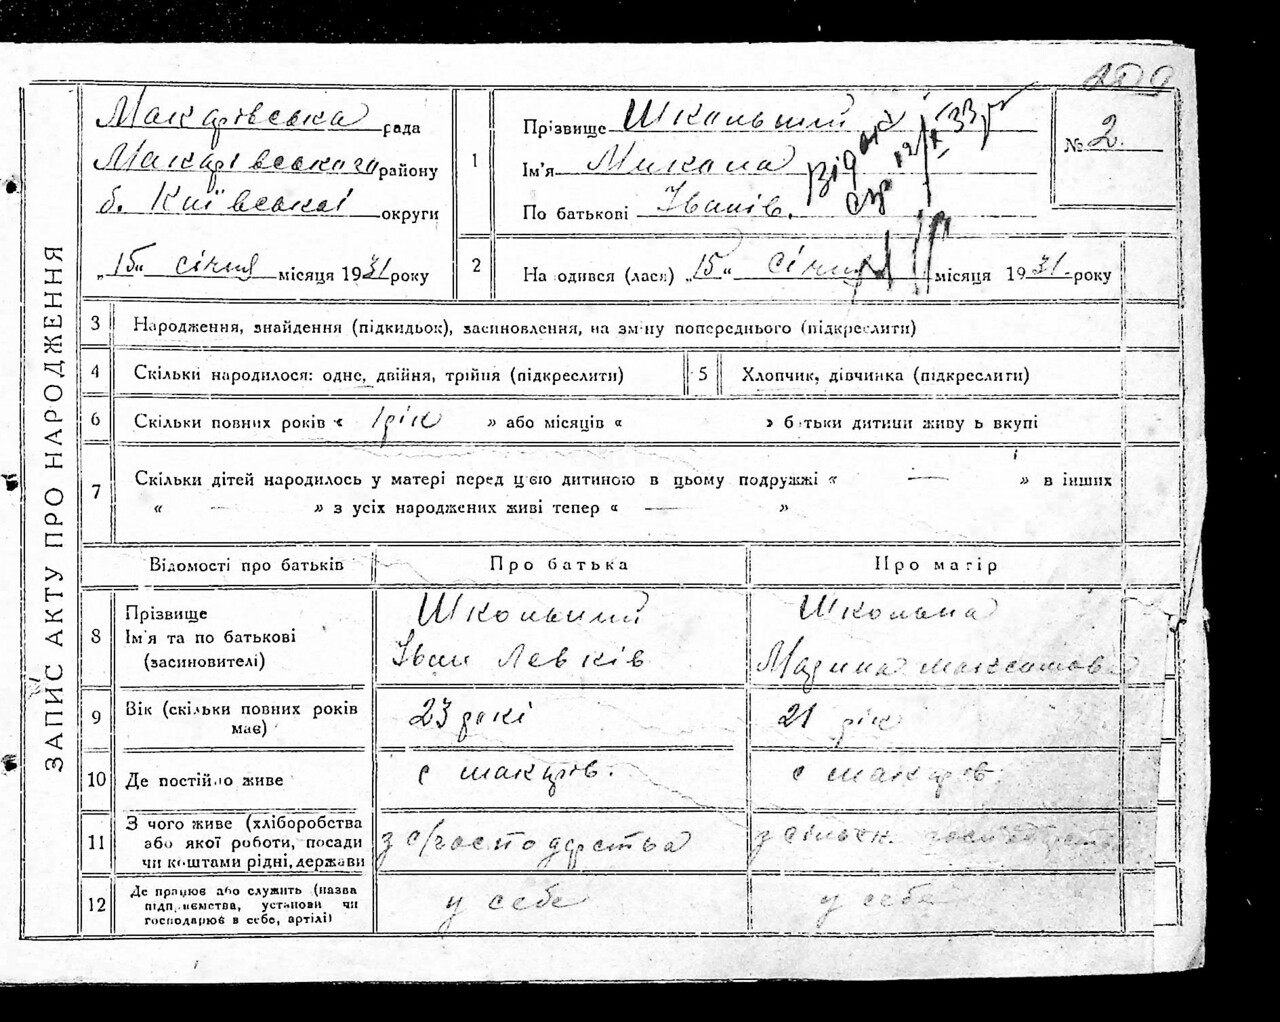 ЗАПИС АКТУ ПРО НАРОДЖЕННЯ
Макарівська рада
Макарівського району
б. Київської округи
„15“ січня місяця 1931 року
1
Прізвище Шкальний
Ім'я Микола
По батькові Іванів.
Видано
№ 2.
2
На одився (лася) „15“ січня місяця 1931 року
3 Народження, знайдення (підкидьок), засиновлення, на зміну попереднього (підкреслити)
4 Скільки народилося: одне, двійня, трійня (підкреслити)
5 Хлопчик, дівчинка (підкреслити)
6 Скільки повних років « 1 рік » або місяців « » батьки дитини живуть вкупі
7 Скільки дітей народилось у матері перед цією дитиною в цьому подружжі « — » в інших
« — » з усіх народжених живі тепер « — »
Відомості про батьків Про батька Про матір
8 Прізвище
Ім'я та по батькові
(засиновителі)
Школьний
Іван Левків
Школьна
Максимова
9 Вік (скільки повних років
має)
23 рокі
21 рік
10 Де постійно живе
с макарів.
с макарів.
11 З чого живе (хліборобства
або якої роботи, посади
чи коштами рідні, держави
з с/господарства
з сільськ. господарства
12 Де працює або служить (назва
підприємства, установи чи
господарює в себе, артілі)
у себе
у себе